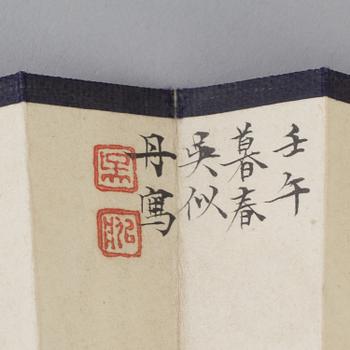 壬午
暮春
吳似
丹寫